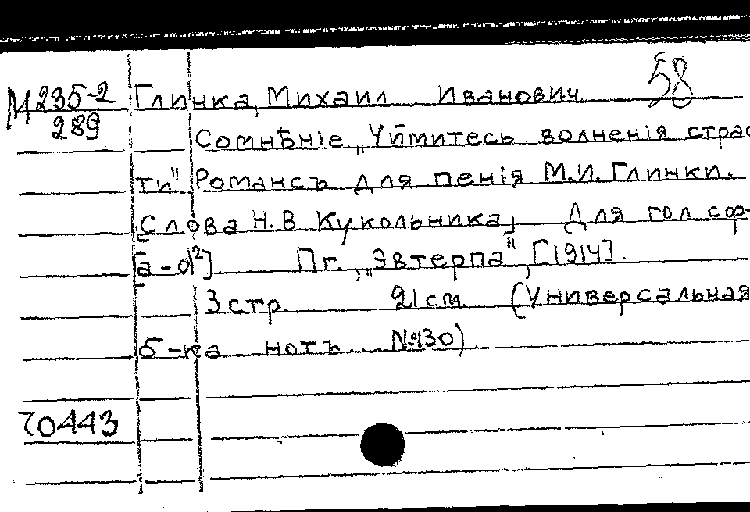 М 235-2 Глинка, Михаил Иванович 58
289
Сомнѣніе „Уймитесь волненія страс
ти" Романсъ для пенія М.И. Глинки.
Слова Н.В. Кукольника, Для гол с ф-
[а-d²] Пг., „Эвтерпа", [1914].
3 стр. 21 см (Универсальная
б-ка нотъ №130)
70443